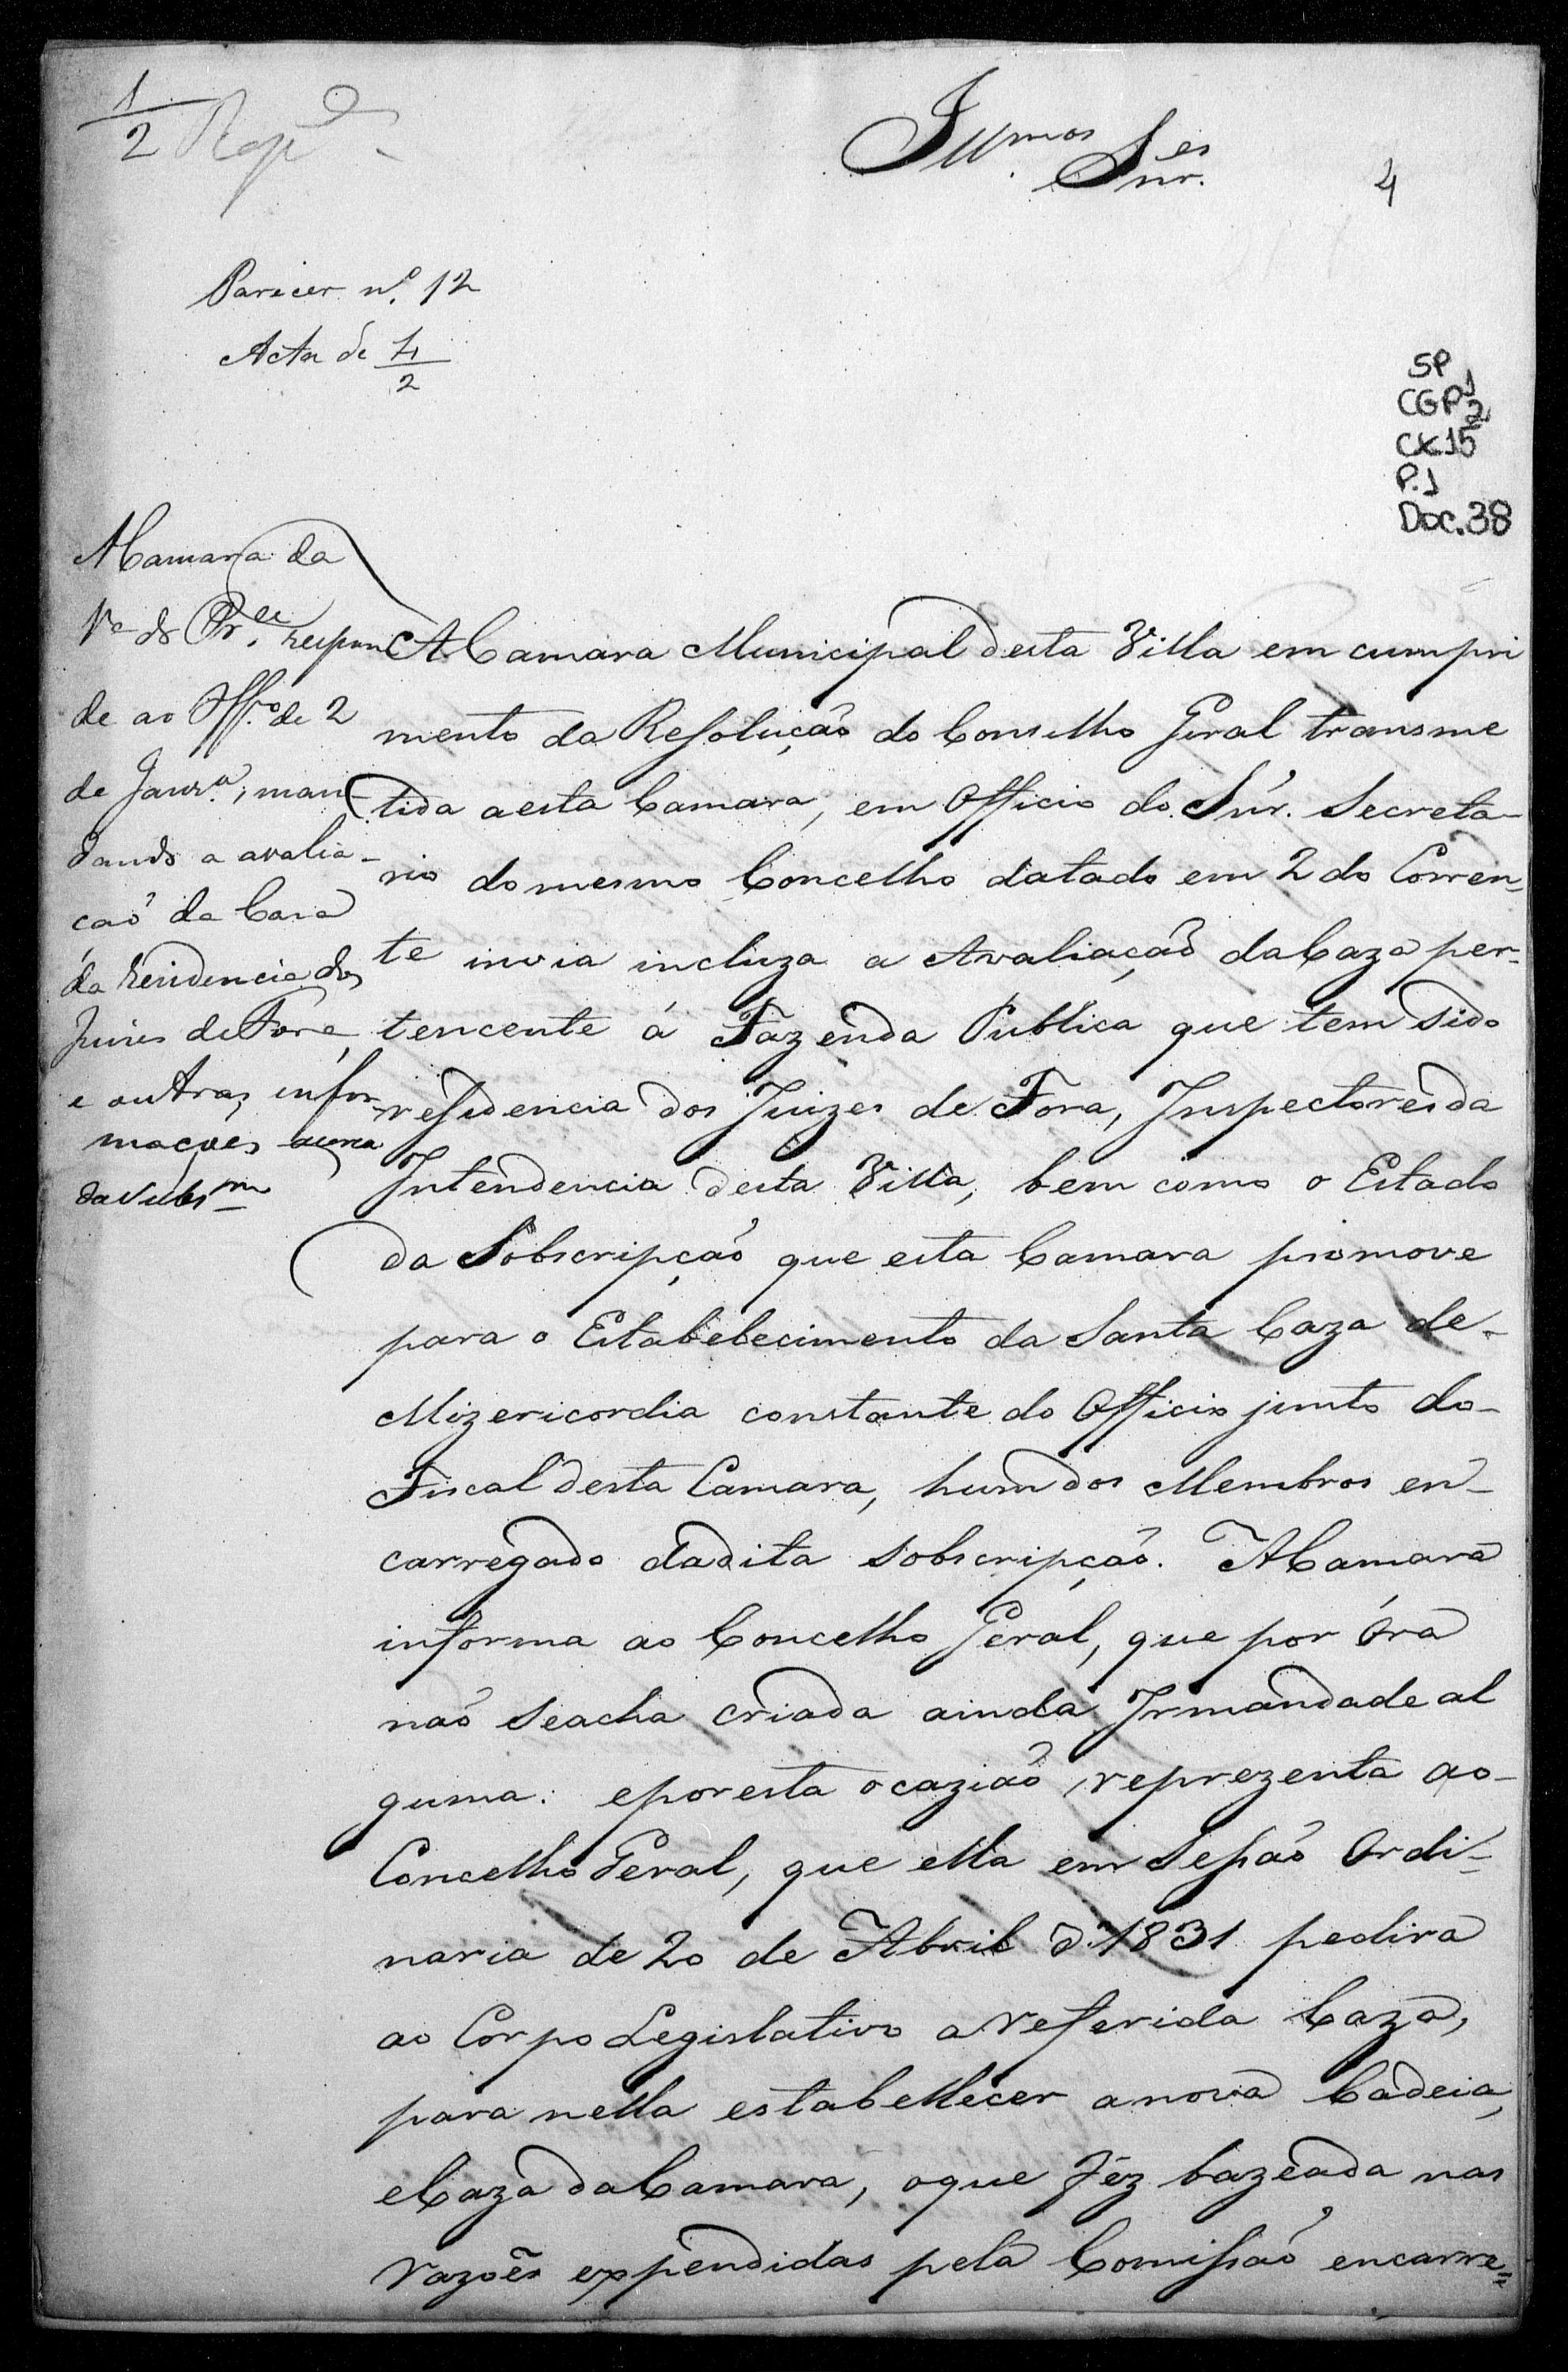 1/2
Illmos Snr.es
4
Paricer nº 12
Acta de 4/2
SP
CGP1
2
CX15
P.1
Doc.38
A Camara da
Va do Pr.e respon
de ao Off.º de 2
de Janr.º, man
dando a avalia-
çaõ da Casa
da residencia dos
Juizes de Fora,
e outras infor
maçoes acerca
da Subsm
A Camara Municipal desta Villa em cumpri
mento da Resoluçaõ do Conselho Geral transme
tida a esta Camara, em Officio do Snr. Secreta-
rio do mesmo Concelho datado em 2 do Corren-
te invia incluza a Avaliaçaõ da Caza per-
tencente á Fazenda Publica que tem sido
residencia dos Juizes de Fora, Inspectores da
Intendencia desta Villa, bem como o Estado
da Sobscripçaõ que esta Camara promove
para o Estabelecimento da Santa Caza de-
Mizericordia constante do Officio junto do-
Fiscal desta Camara, hum dos Membros en-
carregado da dita Sobscripçaõ. A Camara
informa ao Concelho Geral, que por óra
naõ se acha criada ainda Irmandade al
guma: e por esta ocaziaõ, reprezenta ao-
Concelho Geral, que ella em Sessaõ Ordi-
naria de 20 de Abril d'1831 pedira
ao Corpo Legislativo a referida Caza,
para nella estabellecer a nova Cadeia,
e Caza da Camara, o que fêz bazeada nas
razoẽs expendidas pela Comissaõ encarre=